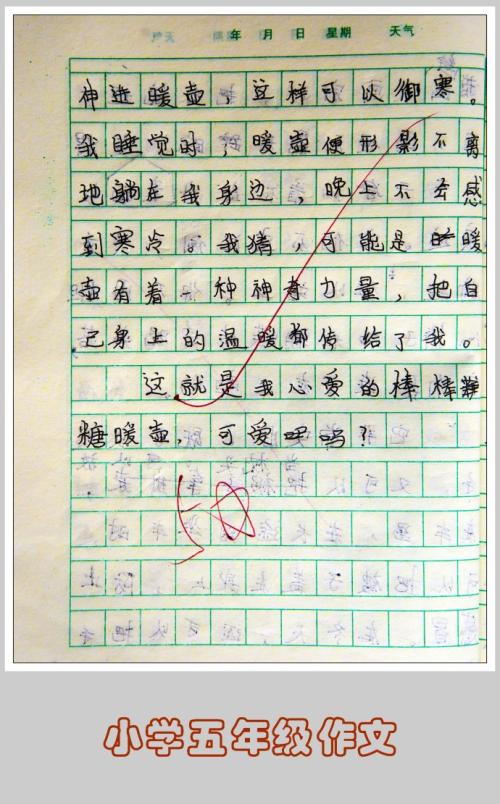 年 月 日 星期 天气
神进暖壶,这样可以御寒。
我睡觉时,暖壶便形影不离
地躺在我身边,晚上不会感
到寒冷。我猜,可能是暖
壶有着一种神奇力量,把自
己身上的温暖都传给了我。
这就是我心爱的棒棒
糖暖壶,可爱吗?
小学五年级作文